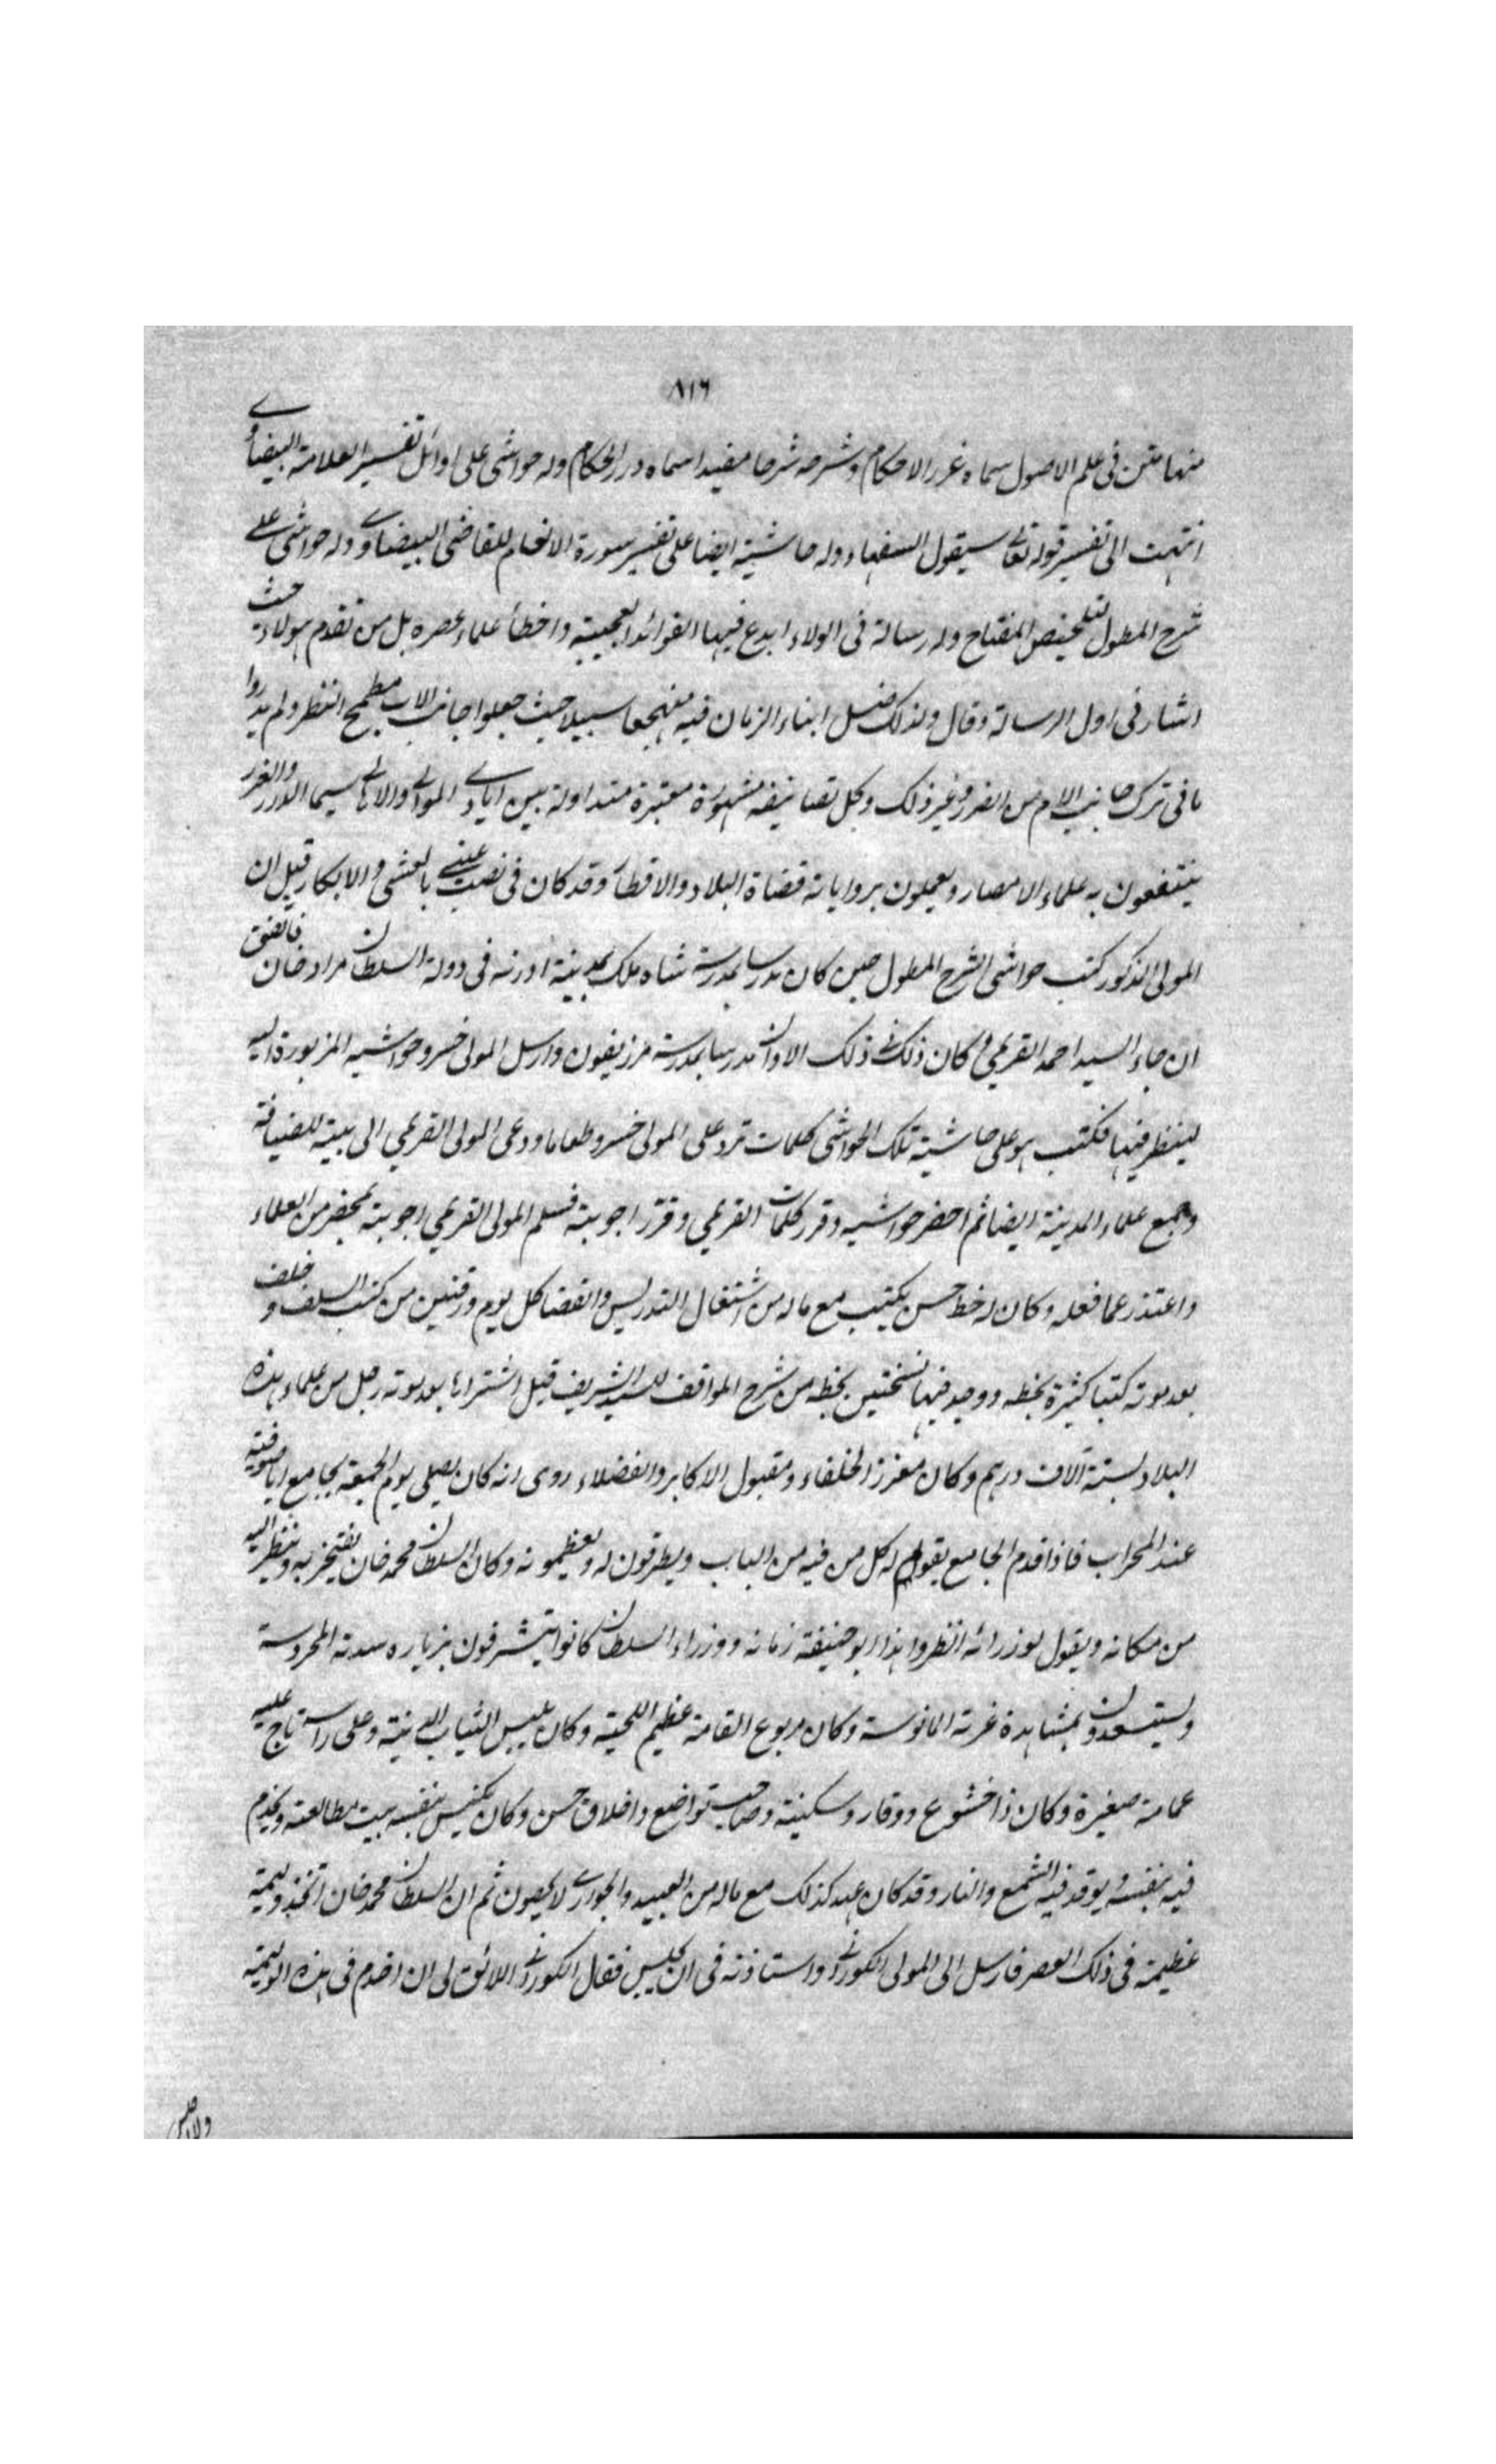 ٨١٦
منها متن فى علم الاصول سماه غرر الاحكام وشرحه شرحا مفيدا سماه درر الحكام وله حواشى على اوائل تفسير العلامة البيضاوى
انتهت الى تفسير قوله تعالى سيقول السفهاء وله حاشية ايضا على تفسير سورة الانعام للقاضى البيضاوى وله حواشى على
شرح المطول لتلخيص المفتاح وله رسالة فى الولاء ابدع فيها الفوائد العجيبة واخطأ علماء عصره بل من تقدم هؤلاء حيث
اشار فى اول الرسالة وقال ولذلك ضل ابناء الزمان فيه منهجا سبيلا حيث جعلوا جانب الاب مطمح النظر ولم يدروا
ما فى ترك جانب الام من الضرر وغير ذلك وكل تصانيفه مشهورة معتبرة متداولة بين ايادى الموالى والاهالى سيما الدرر والغرر
ينتفعون به علماء الامصار ويعملون برواياته قضاة البلاد والاقطار وقد كان فى نصب عينى بالعشى والابكار قيل ان
المولى المذكور كتب حواشى الشرح المطول حين كان مدرسا بمدرسة شاه ملك بمدينة ادرنه فى دولة السلطان مراد خان فاتفق
ان جاء السيد احمد القريمى وكان ذلك فى ذلك الاوان مدرسا بمدرسة مرزيفون وارسل المولى خسرو حواشيه المزبورة اليه
لينظر فيها فكتب هو على حاشية تلك الحواشى كلمات ترد على المولى خسرو طعاما ودعى المولى القريمى الى بيته للضيافة
وجمع علماء المدينة ايضا ثم احضر حواشيه وقرر كلمات القريمى وقرر اجوبته فسلم المولى القريمى اجوبته بمحضر من العلماء
واعتذر عما فعله وكان له خط حسن يكتب مع ماله من اشتغال التدريس والقضا كل يوم ورقتين من كتب السلف وخلف
بعد موته كتبا كثيرة بخطه ووجد فيها نسختين بخطه من شرح المواقف للسيد الشريف قيل اشتراها بعد موته رجل من علماء هذه
البلاد بستة آلاف درهم وكان معزز الخلفاء ومقبول الاكابر والفضلاء روى انه كان يصلى يوم الجمعة بجامع اياصوفيه
عند المحراب فاذا قدم الجامع يقوم له كل من فيه من الباب ويطرقون له ويعظمونه وكان السلطان محمد خان يفتخر به وينظر اليه
من مكانه ويقول لوزرائه انظروا هذا ابو حنيفة زمانه ووزراء السلطان كانوا يتشرفون بزياره سدته المحروسة
ويستسعدون بمشاهدة غرته المانوسة وكان مربوع القامة عظيم اللحية وكان يلبس الثياب الدنية وعلى راسه تاج عليه
عمامة صغيرة وكان ذا خشوع ووقار وسكينة وصاحب تواضع واخلاق حسن وكان يكنس بنفسه بيت مطالعته ويخدم
فيه بنفسه ويوقد فيه الشمع والنار وقد كان عهد كذلك مع ماله من العبيد والجوارى لا يحصون ثم ان السلطان محمد خان اتخذ وليمة
عظيمة فى ذلك العصر فارسل الى المولى الكورانى واستاذنه فى ان يجلس فقال الكورانى اللائق لى ان اخدم فى هذه الوليمة
ولا اجلس